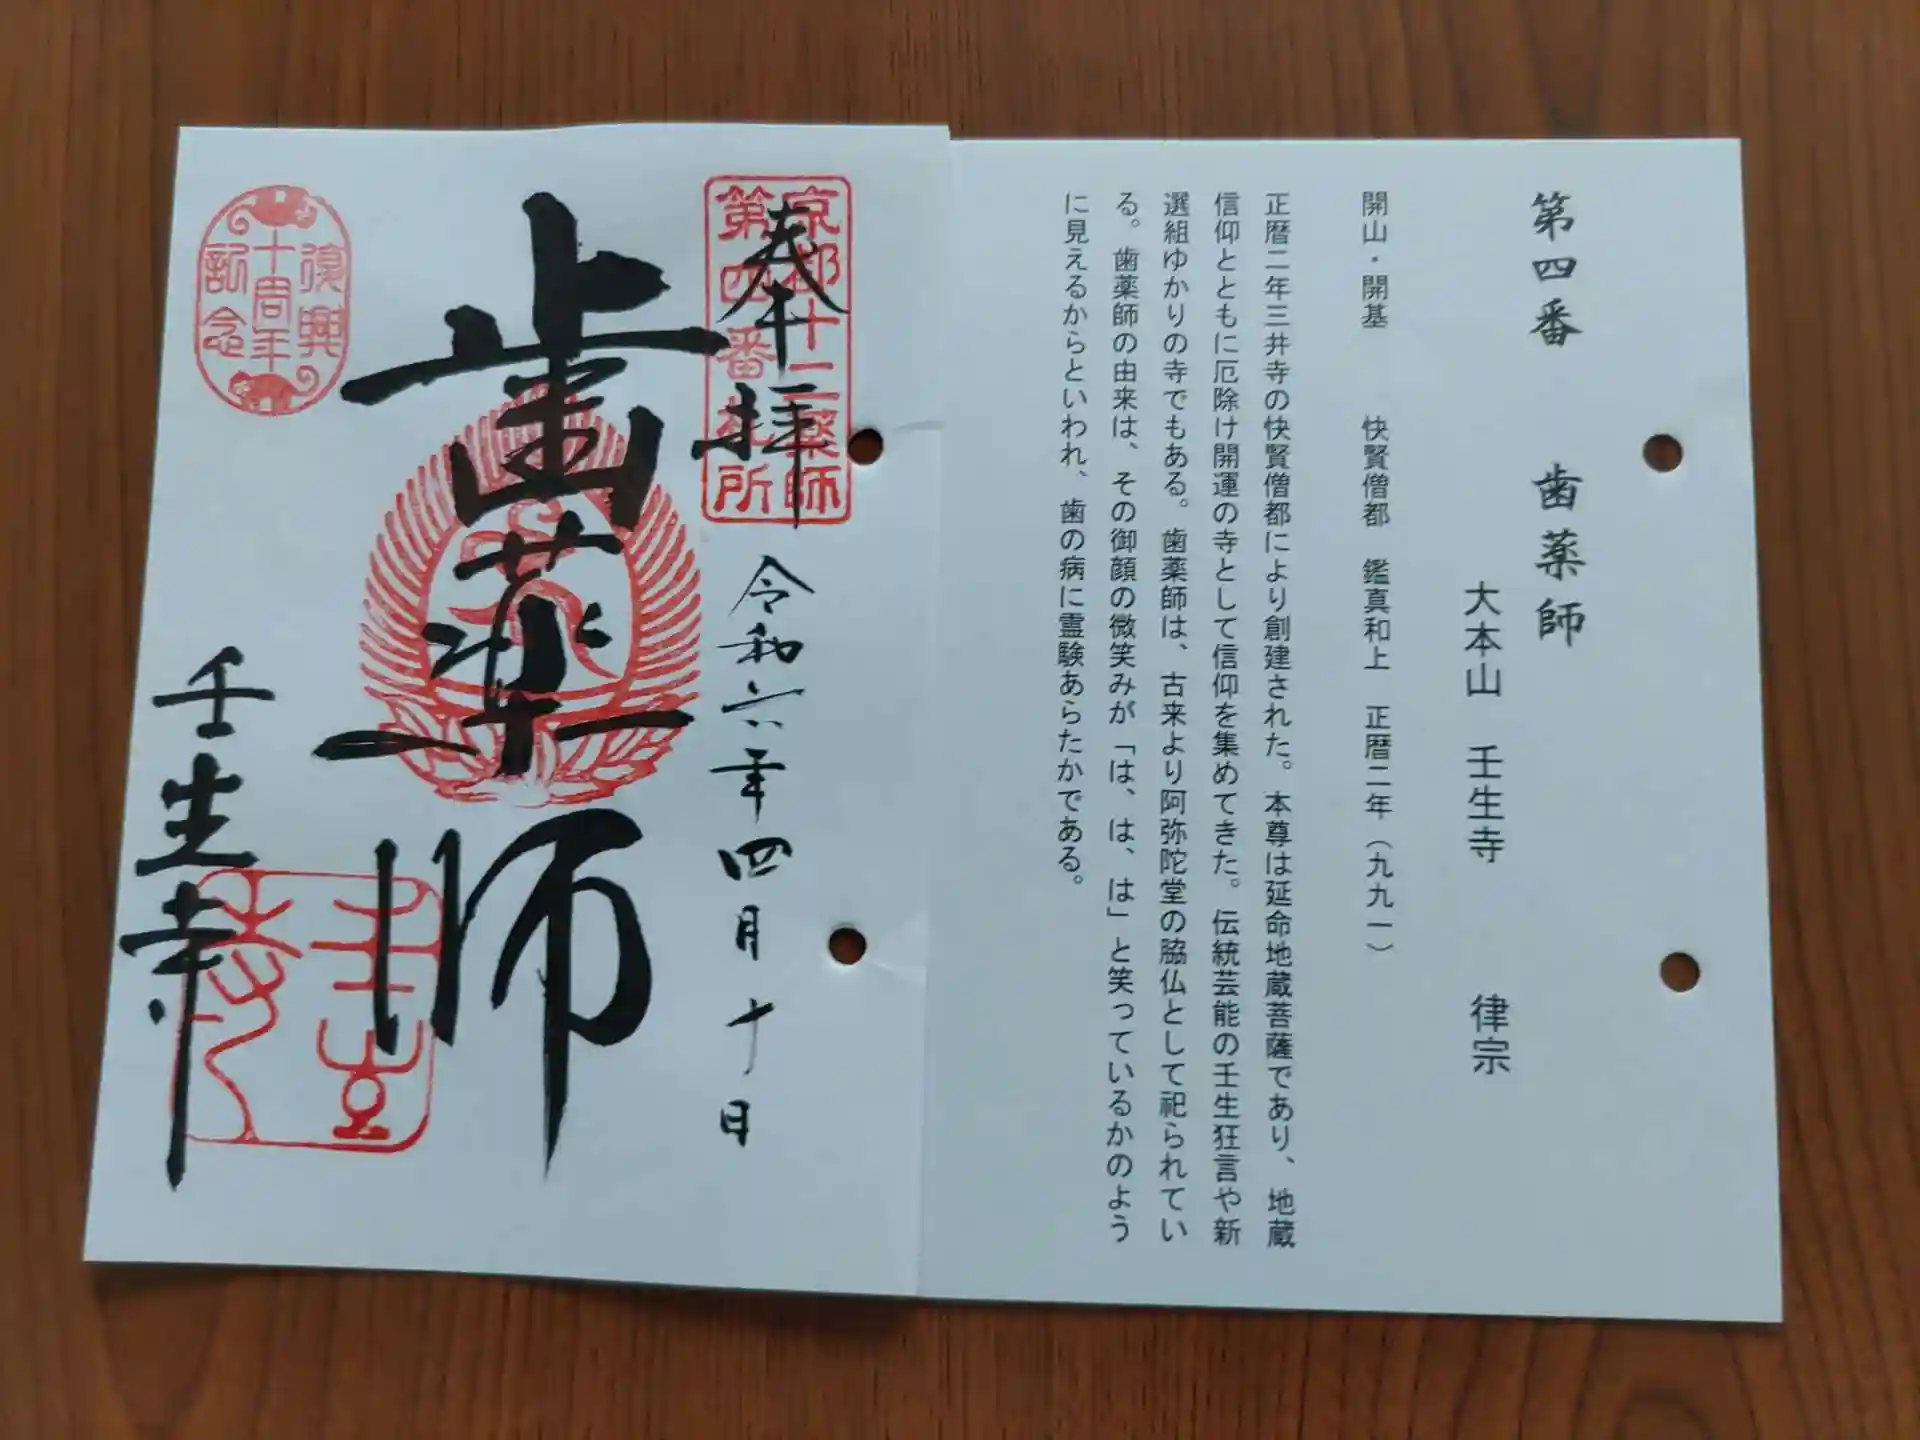 第四番　歯薬師
大本山　壬生寺　律宗
開山・開基　快賢僧都　鑑真和上　正暦二年（九九一）
正暦二年三井寺の快賢僧都により創建された。本尊は延命地蔵菩薩であり、地蔵
信仰とともに厄除け開運の寺として信仰を集めてきた。伝統芸能の壬生狂言や新
選組ゆかりの寺でもある。歯薬師は、古来より阿弥陀堂の脇仏として祀られてい
る。歯薬師の由来は、その御顔の微笑みが「は、は、は」と笑っているかのよう
に見えるからといわれ、歯の病に霊験あらたかである。
京都十二薬師
第四番札所
奉拝
令和六年四月十日
歯薬師
壬生寺
復興
十周年
記念